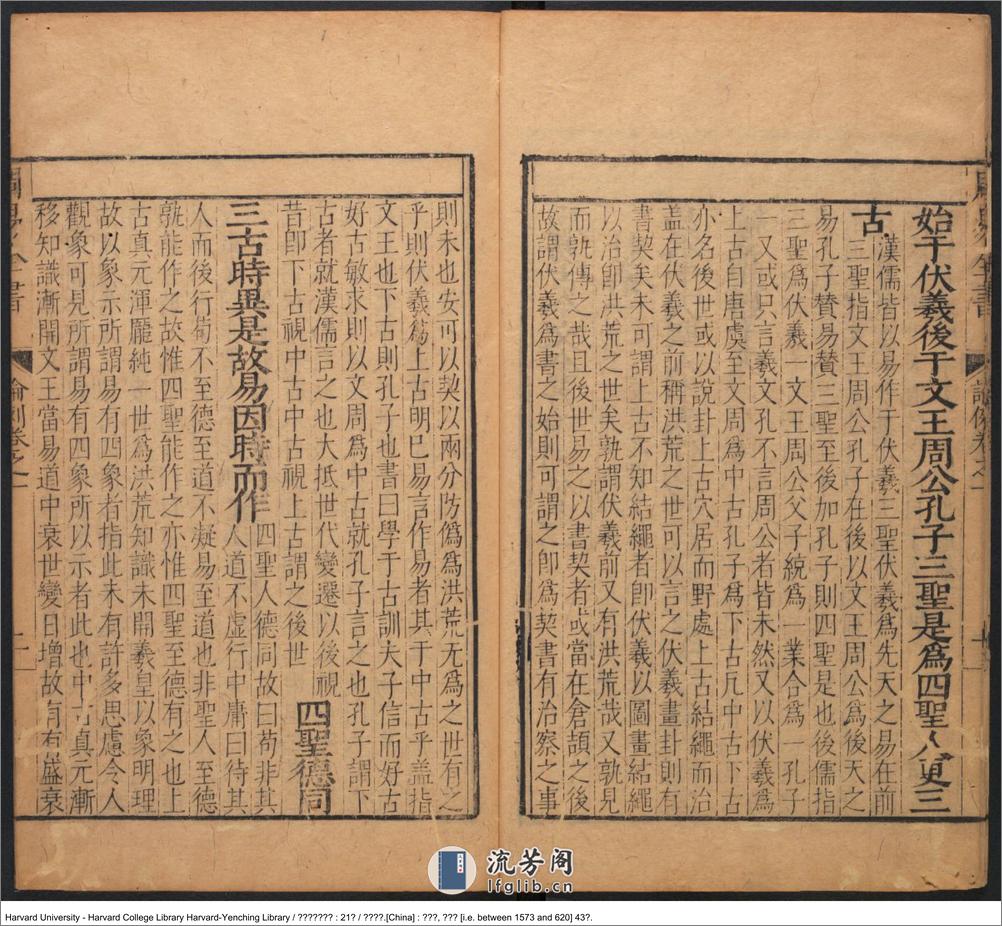 始于伏羲後于文王周公孔子三聖是爲四聖人更三
古
漢儒皆以易作于伏羲三聖伏羲爲先天之易在前
三聖指文王周公孔子在後以文王周公爲後天之
易孔子贊易贊三聖至後加孔子則四聖是也後儒指
三聖爲伏羲一文王周公父子統爲一業合爲一孔子
一又或只言羲文孔不言周公者皆未然又以伏羲爲
上古自唐虞至文周爲中古孔子爲下古凢中古下古
亦名後世或以說卦上古穴居而野處上古結繩而治
盖在伏羲之前稱洪荒之世可以言之伏羲畫卦則有
書契矣未可謂上古不知結繩者卽伏羲以圖畫結繩
以治卽洪荒之世矣孰謂伏羲前又有洪荒哉又孰見
而孰傳之哉且後世易之以書契者或當在倉頡之後
故謂伏羲爲書之始則可謂之卽爲契書有治察之事
則未也安可以契以兩分防僞爲洪荒无爲之世有之
乎則伏羲爲上古明巳易言作易者其于中古乎盖指
文王也下古則孔子也書曰學于古訓夫子信而好古
好古敏求則以文周爲中古就孔子言之也孔子謂下
古者就漢儒言之也大抵世代變遷以後視
昔卽下古視中古中古視上古謂之後世
四聖德同
三古時異是故易因時而作
四聖人德同故曰苟非其
人道不虛行中庸曰待其
人而後行苟不至德至道不凝易至道也非聖人至德
孰能作之故惟四聖能作之亦惟四聖至德有之也上
古真元渾龎純一世爲洪荒知識未開羲皇以象明理
故以象示所謂易有四象者指此未有許多思慮令人
觀象可見所謂易有四象所以示者此也中古真元漸
移知識漸開文王當易道中衰世變日增故有有盛衰
論例卷之一
流芳阁
lfglib.cn
Harvard University - Harvard College Library Harvard-Yenching Library / ??????? : 21? / ????.[China] : ???, ??? [i.e. between 1573 and 620] 43?.